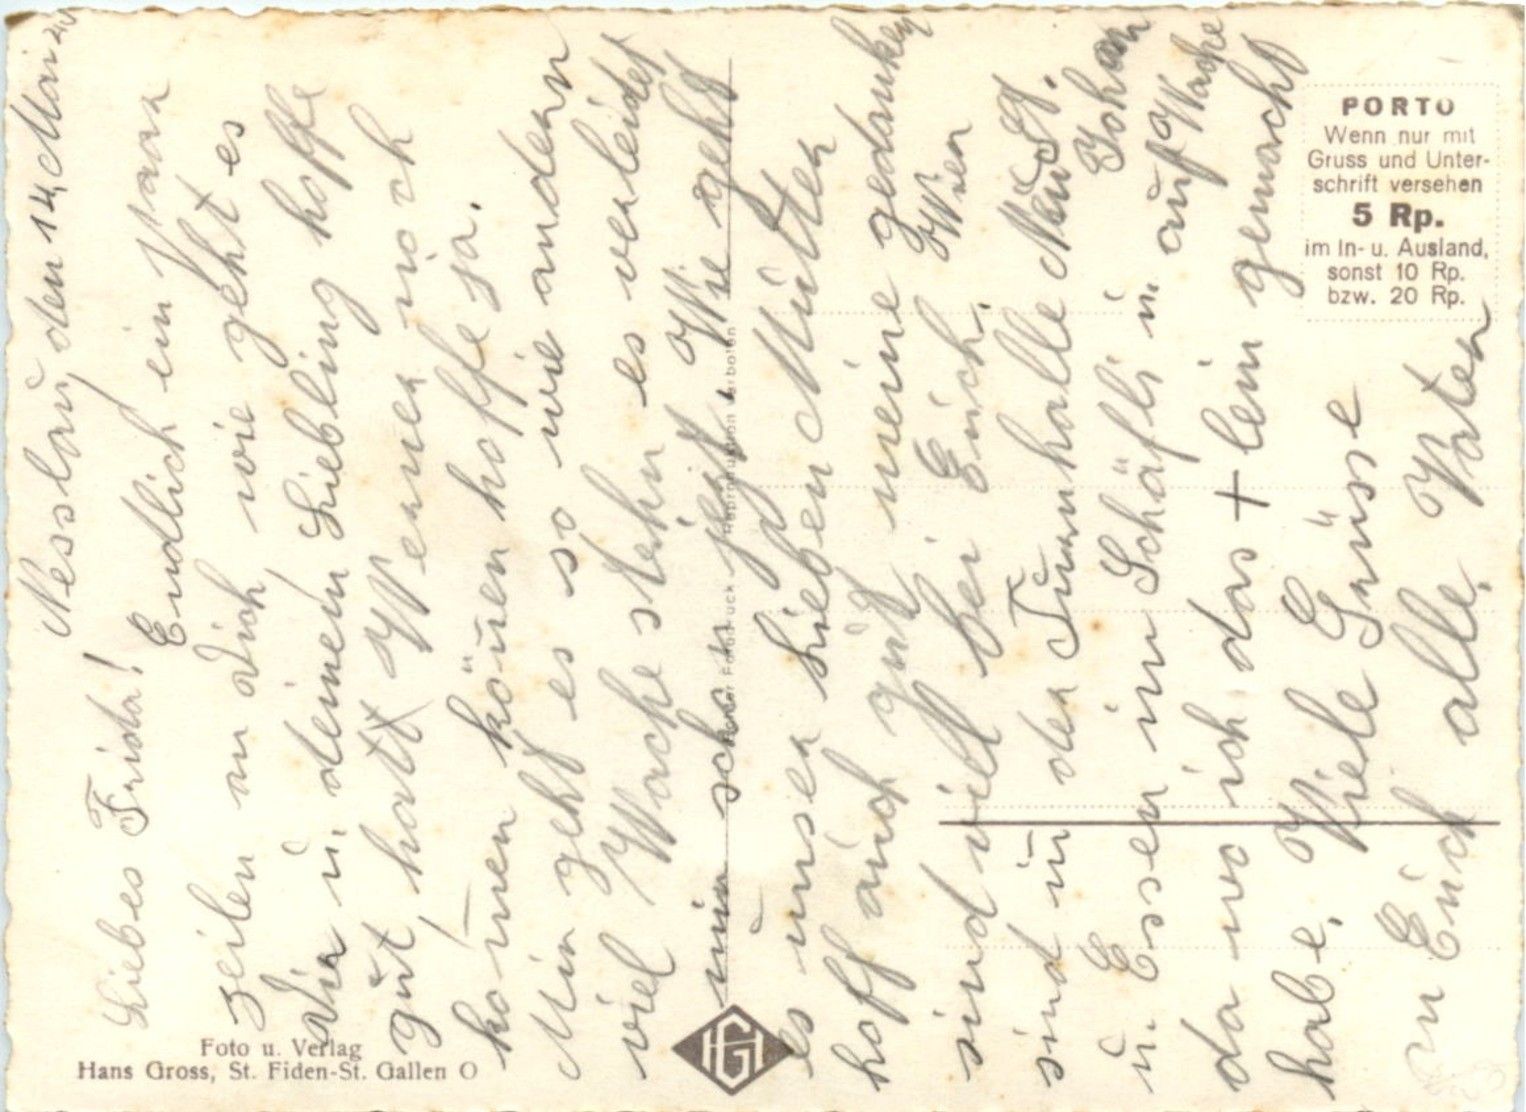 Nesslau, den 14. Mai
Liebes Frida!
Endlich ein paar
zeilen an dich wie geht es
dir u. deinem Liebling hoffe
gut, hatt Werner noch
kommen können hoffe ja.
Mir geht es so wie andern
viel Wache stehn es verleidet
mir schon jezt. Wie geht
es unser Lieben Mutter
hoff auch gut meine gedanken
sind viel bei Euch. Wier
sind in der Turnhalle Neu St. Johan
u. Essen im Schäfli u. auf Wache
da wo ich das + lein gemacht
habe. Viele Grüsse
an Euch alle. Vater
PORTO
Wenn nur mit
Gruss und Unter-
schrift versehen
5 Rp.
im In- u. Ausland,
sonst 10 Rp.
bzw. 20 Rp.
Foto u. Verlag
Hans Gross, St. Fiden-St. Gallen O
HG